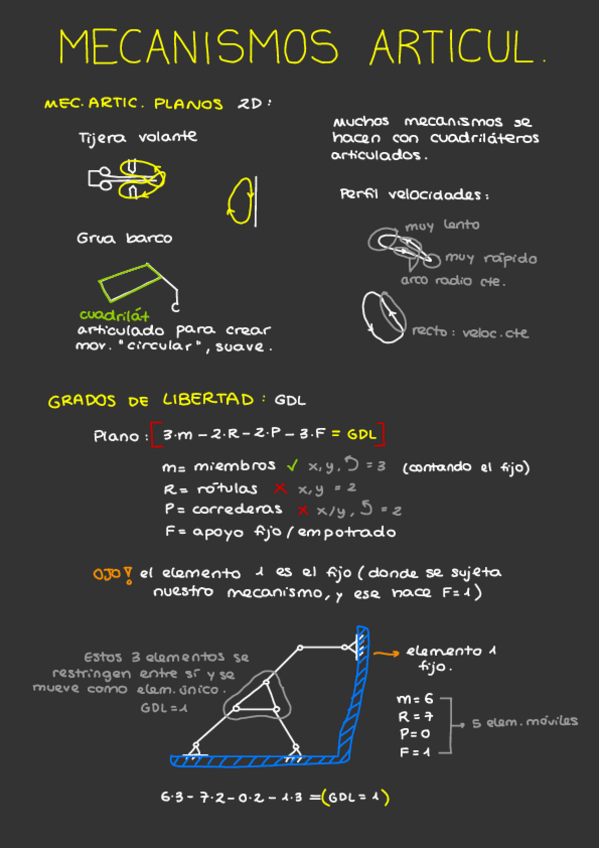 MECANISMOS ARTICUL.
MEC. ARTIC. PLANOS 2D:
Tijera volante
Grua barco
cuadrilát
articulado para crear
mov. "circular", suave.
Muchos mecanismos se
hacen con cuadriláteros
articulados.
Perfil velocidades:
muy lento
muy rápido
arco radio cte.
recto: veloc. cte
GRADOS DE LIBERTAD: GDL
Plano: [3·m - 2·R - 2·P - 3·F = GDL]
m= miembros ✓ x, y, ↺ = 3 (contando el fijo)
R= rótulas × x, y = 2
P= correderas × x/y, ↺ = 2
F= apoyo fijo / empotrado
OJO! el elemento 1 es el fijo (donde se sujeta
nuestro mecanismo, y ese hace F=1)
Estos 3 elementos se
restringen entre sí y se
mueve como elem. único.
GDL=1
→ elemento 1
fijo.
m=6
R=7
P=0
F=1
→ 5 elem. móviles
6·3 - 7·2 - 0·2 - 1·3 = (GDL = 1)